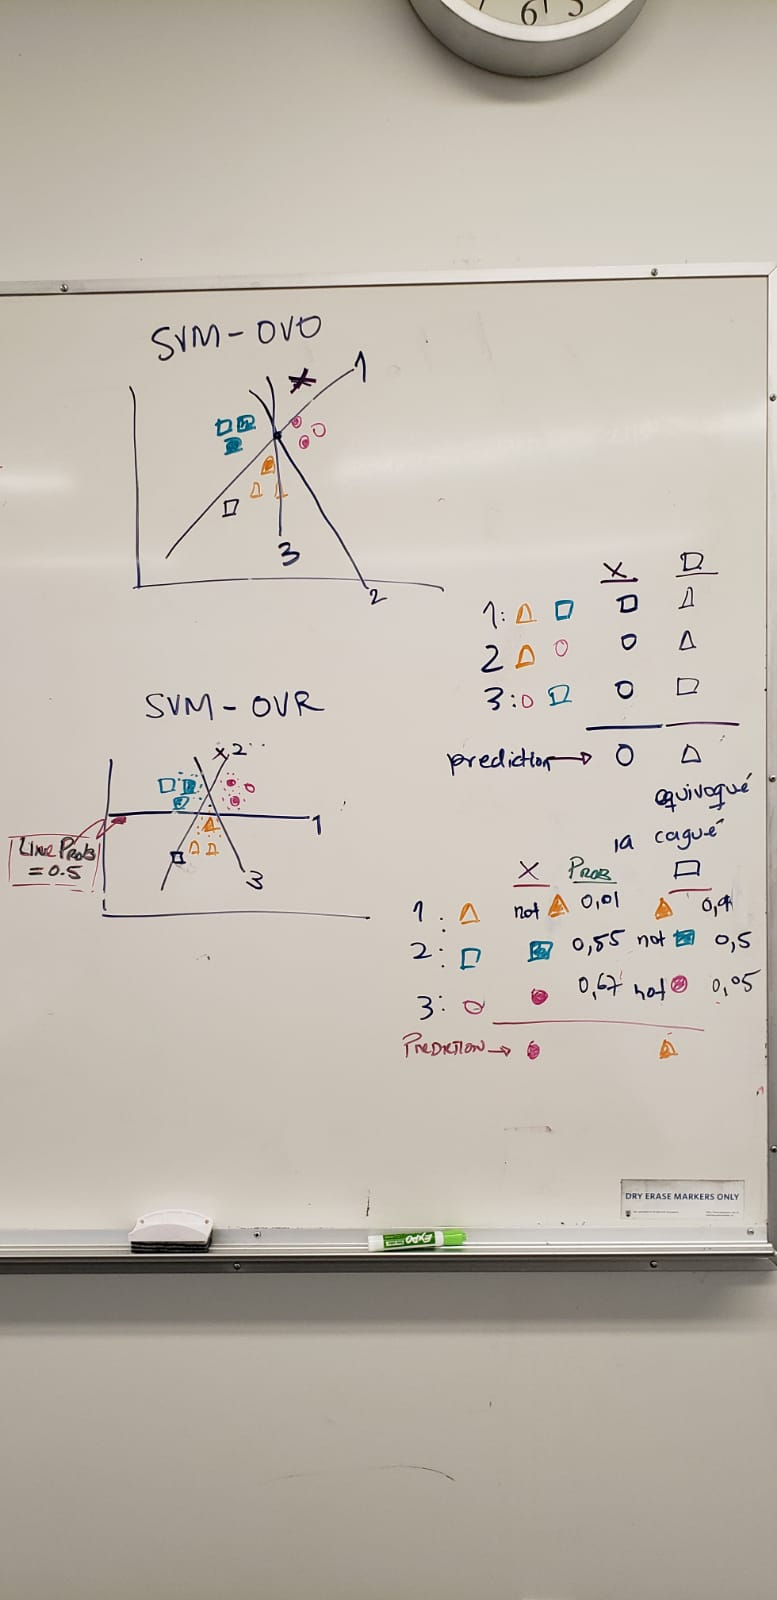 6 5
SVM-OVO
1
3
2
X
1:
2
3:
prediction
equivoqué
la cagué
SVM-OVR
X 2
1
3
LINE PROB
= 0.5
X PROB
1: not 0,01 0,9
2: 0,55 not 0,5
3: 0,67 not 0,05
PREDICTION
EXPO
DRY ERASE MARKERS ONLY